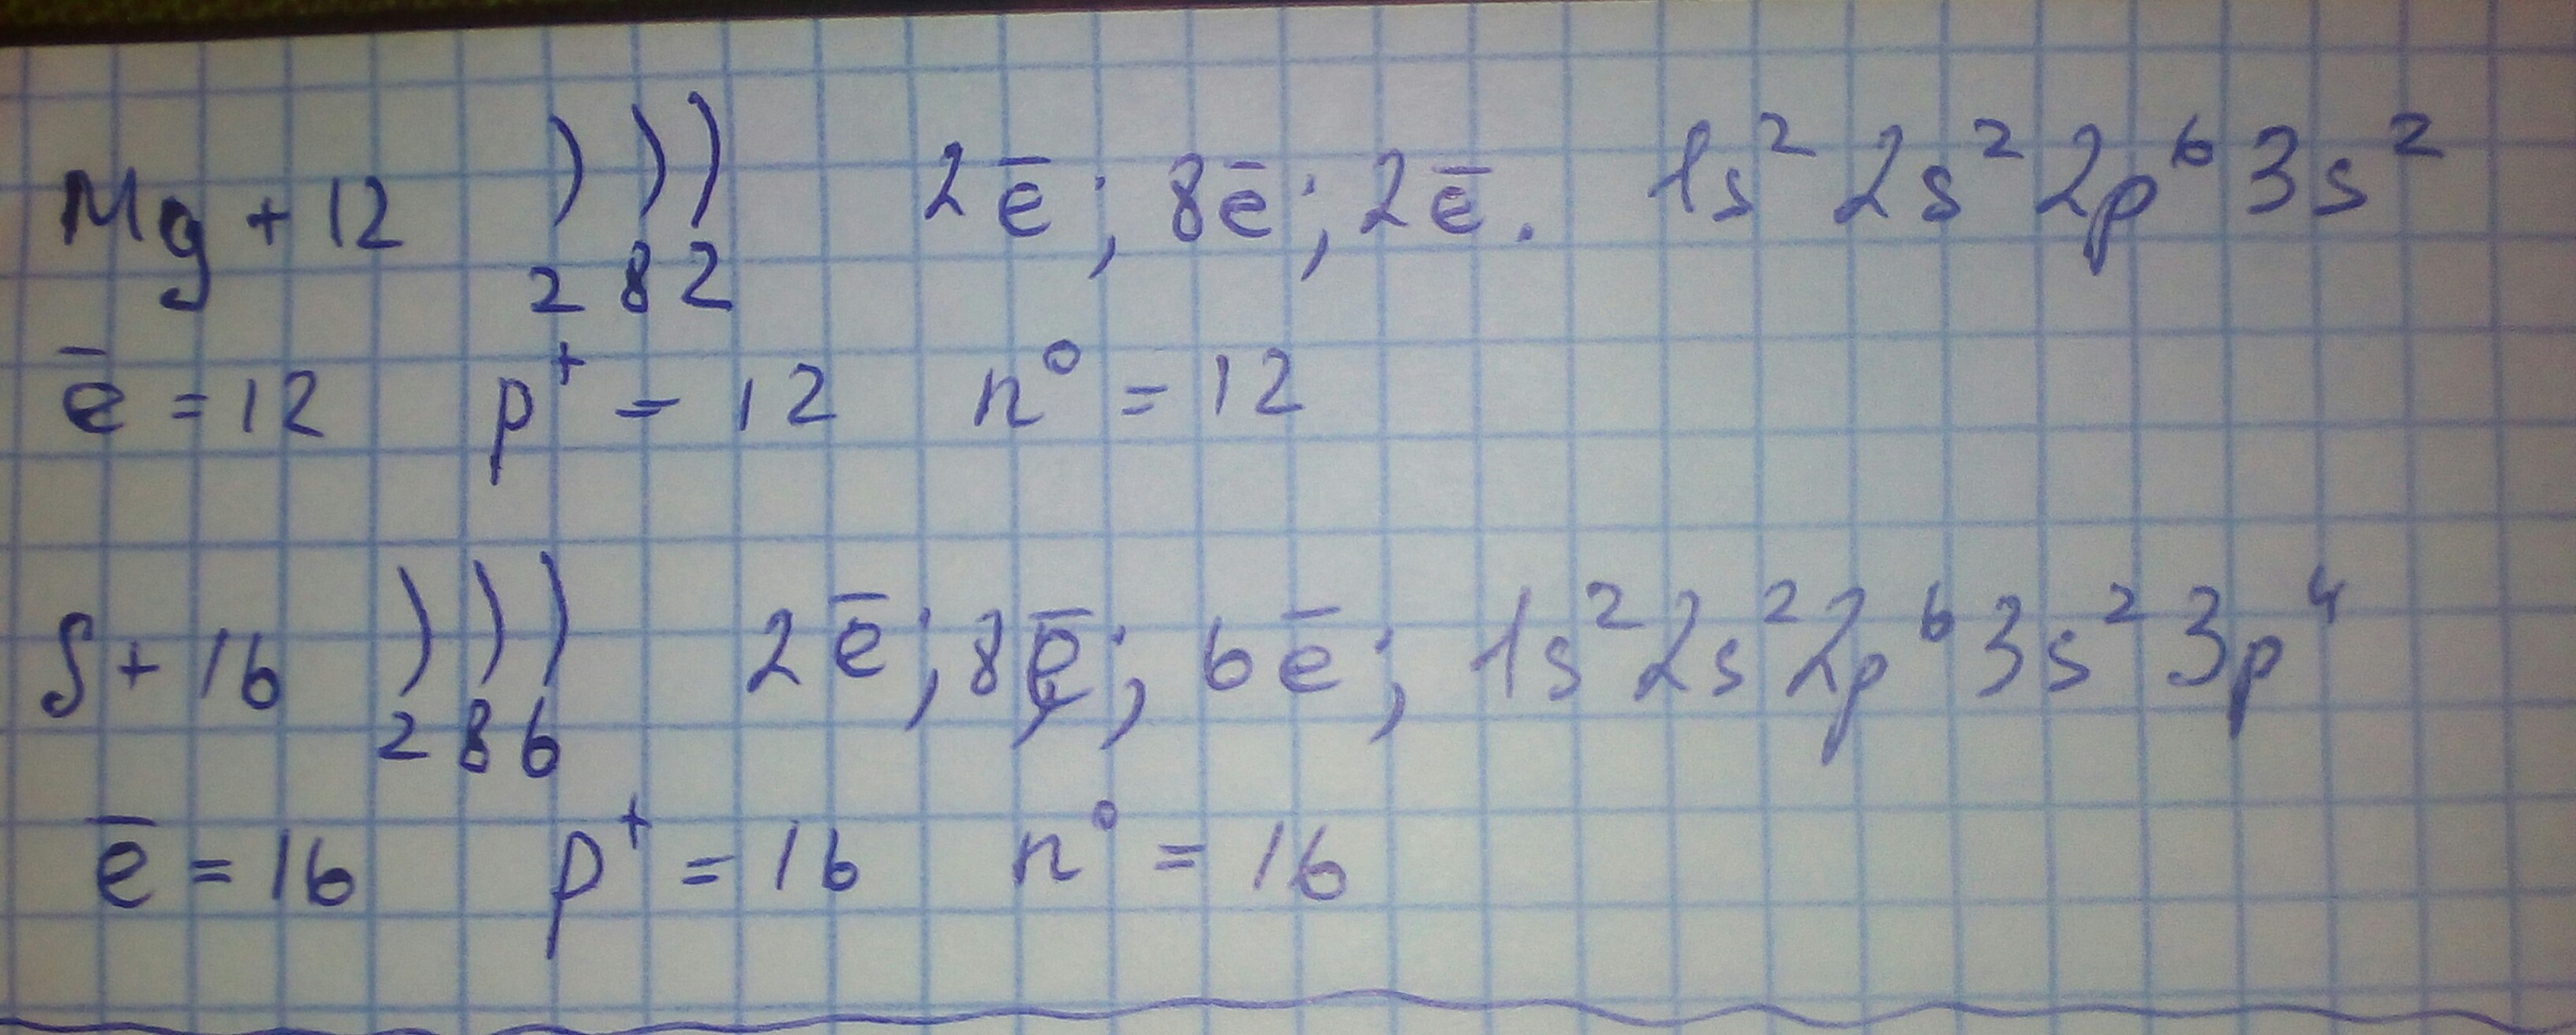 Mg +12 ) ) ) 2ē; 8ē; 2ē. 1s² 2s² 2p⁶ 3s²
2 8 2
ē = 12 p⁺ = 12 n⁰ = 12
S +16 ) ) ) 2ē; 8ē; 6ē; 1s² 2s² 2p⁶ 3s² 3p⁴
2 8 6
ē = 16 p⁺ = 16 n⁰ = 16